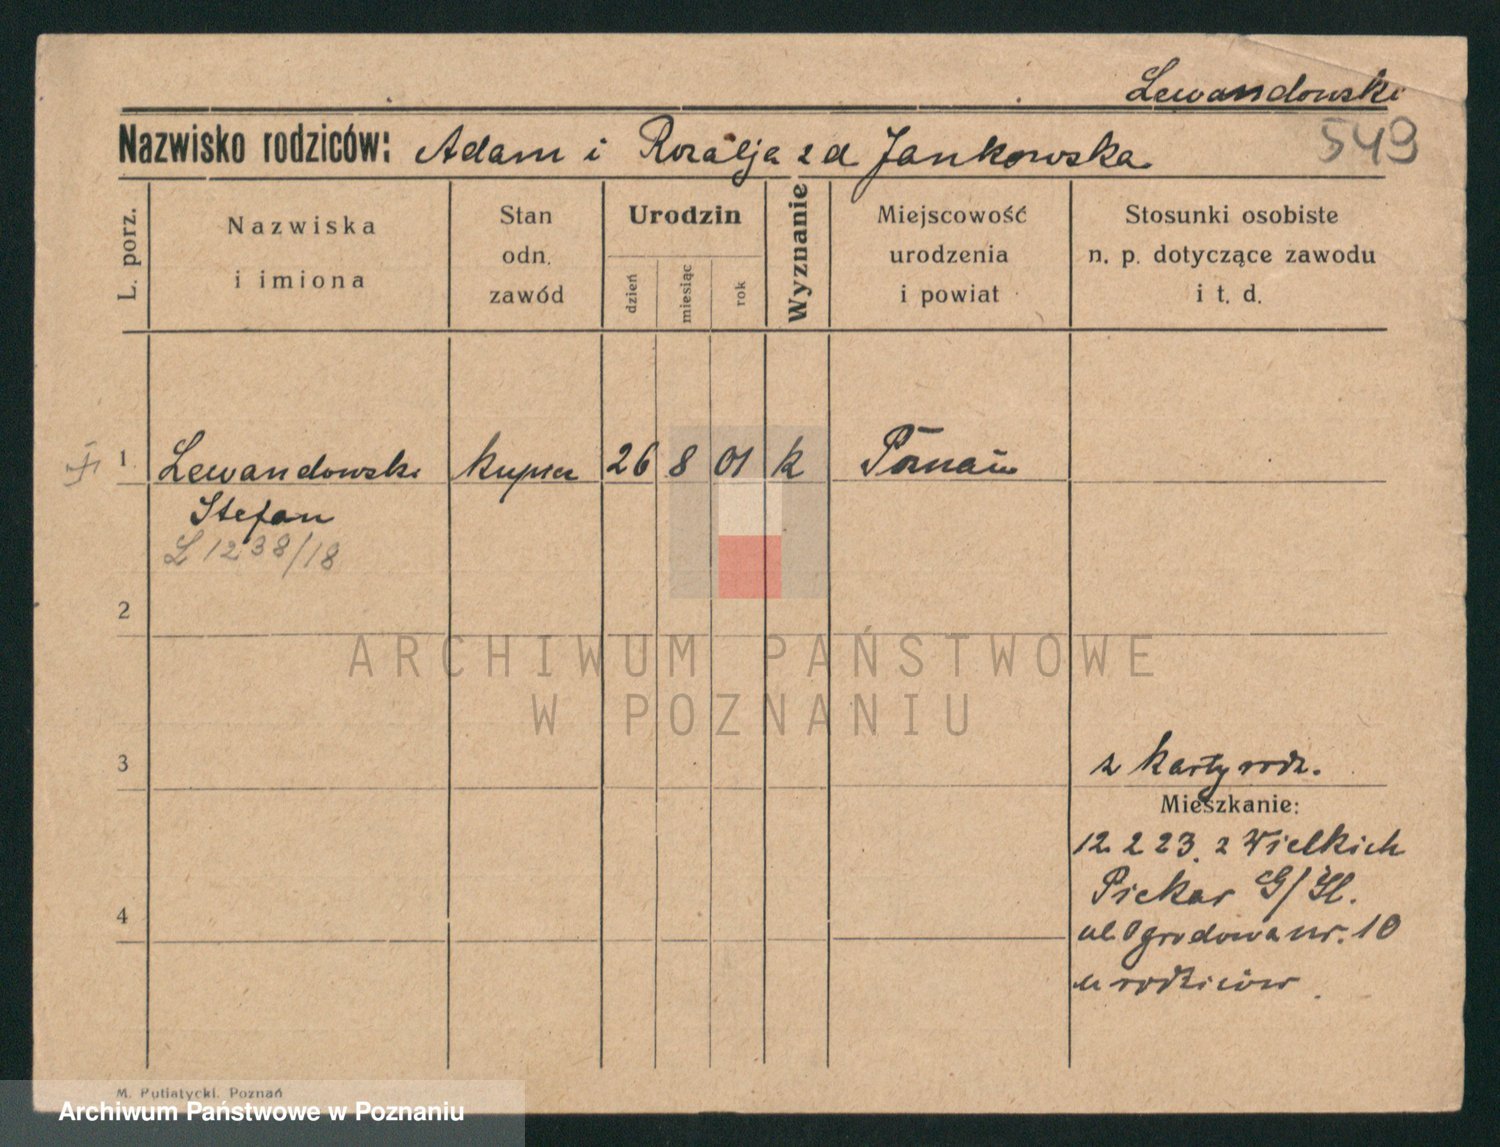 Lewandowski
549
Nazwisko rodziców: Adam i Rozalja z d Jankowska
L. porz.
Nazwiska i imiona
Stan odn. zawód
Urodzin
dzień
miesiąc
rok
Wyznanie
Miejscowość urodzenia i powiat
Stosunki osobiste n. p. dotyczące zawodu i t. d.
1 Lewandowski kupiec 26 8 01 k Poznań
Stefan
L 1238/18
2
ARCHIWUM PAŃSTWOWE
W POZNANIU
3
z karty rodz.
Mieszkanie:
12 2 23. z Wielkich
Piekar G/Śl.
4
ul. Ogrodowa nr. 10
u rodziców
M. Putiatycki. Poznań
Archiwum Państwowe w Poznaniu